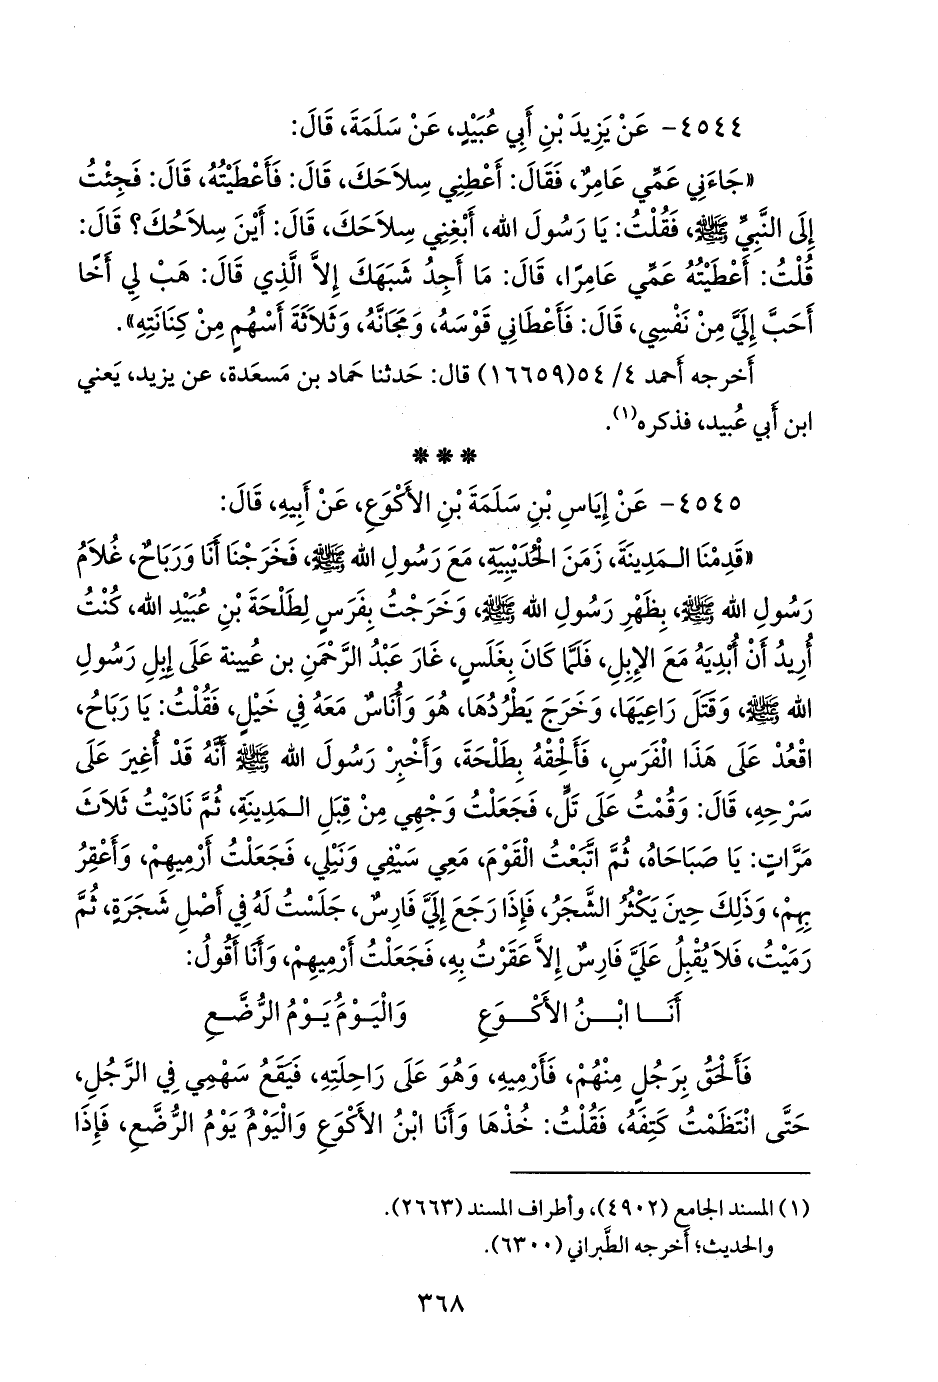 ٤٥٤٤- عَنْ يَزِيدَ بْنِ أَبِي عُبَيْدٍ، عَنْ سَلَمَةَ، قَالَ:
«جَاءَنِي عَمِّي عَامِرٌ، فَقَالَ: أَعْطِنِي سِلاَحَكَ، قَالَ: فَأَعْطَيْتُهُ، قَالَ: فَجِئْتُ
إِلَى النَّبِيِّ ﷺ، فَقُلْتُ: يَا رَسُولَ الله، أَبْغِنِي سِلاَحَكَ، قَالَ: أَيْنَ سِلاَحُكَ؟ قَالَ:
قُلْتُ: أَعْطَيْتُهُ عَمِّي عَامِرًا، قَالَ: مَا أَجِدُ شَبَهَكَ إِلاَّ الَّذِي قَالَ: هَبْ لِي أَخًا
أَحَبَّ إِلَيَّ مِنْ نَفْسِي، قَالَ: فَأَعْطَانِي قَوْسَهُ، وَمَجَانَّهُ، وَثَلاَثَةَ أَسْهُمٍ مِنْ كِنَانَتِهِ».
أَخرجه أَحمد ٤/ ٥٤(١٦٦٥٩) قال: حَدثنا حماد بن مَسعَدة، عن يزيد، يَعني
ابن أَبي عُبيد، فذكره(١).
* * *
٤٥٤٥- عَنْ إِيَاسِ بْنِ سَلَمَةَ بْنِ الأَكْوَعِ، عَنْ أَبِيهِ، قَالَ:
«قَدِمْنَا الـمَدِينَةَ، زَمَنَ الْحُدَيْبِيَةِ، مَعَ رَسُولِ الله ﷺ، فَخَرَجْنَا أَنَا وَرَبَاحٌ، غُلاَمُ
رَسُولِ الله ﷺ، بِظَهْرِ رَسُولِ الله ﷺ، وَخَرَجْتُ بِفَرَسٍ لِطَلْحَةَ بْنِ عُبَيْدِ الله، كُنْتُ
أُرِيدُ أَنْ أُبْدِيَهُ مَعَ الإِبِلِ، فَلَمَّا كَانَ بِغَلَسٍ، غَارَ عَبْدُ الرَّحْمَنِ بن عُيينة عَلَى إِبِلِ رَسُولِ
الله ﷺ، وَقَتَلَ رَاعِيَهَا، وَخَرَجَ يَطْرُدُهَا، هُوَ وَأُنَاسٌ مَعَهُ فِي خَيْلٍ، فَقُلْتُ: يَا رَبَاحُ،
اقْعُدْ عَلَى هَذَا الْفَرَسِ، فَأَلْحِقْهُ بِطَلْحَةَ، وَأَخْبِرْ رَسُولَ الله ﷺ أَنَّهُ قَدْ أُغِيرَ عَلَى
سَرْحِهِ، قَالَ: وَقُمْتُ عَلَى تَلٍّ، فَجَعَلْتُ وَجْهِي مِنْ قِبَلِ الـمَدِينَةِ، ثُمَّ نَادَيْتُ ثَلاَثَ
مَرَّاتٍ: يَا صَبَاحَاهُ، ثُمَّ اتَّبَعْتُ الْقَوْمَ، مَعِي سَيْفِي وَنَبْلِي، فَجَعَلْتُ أَرْمِيهِمْ، وَأَعْقِرُ
بِهِمْ، وَذَلِكَ حِينَ يَكْثُرُ الشَّجَرُ، فَإِذَا رَجَعَ إِلَيَّ فَارِسٌ، جَلَسْتُ لَهُ فِي أَصْلِ شَجَرَةٍ، ثُمَّ
رَمَيْتُ، فَلاَ يُقْبِلُ عَلَيَّ فَارِسٌ إِلاَّ عَقَرْتُ بِهِ، فَجَعَلْتُ أَرْمِيهِمْ، وَأَنَا أَقُولُ:
أَنَـــا ابْـــنُ الأَكْـــوَعِ وَالْيَـوْمُ يَـوْمُ الرُّضَّـعِ
فَأَلْحَقُ بِرَجُلٍ مِنْهُمْ، فَأَرْمِيهِ، وَهُوَ عَلَى رَاحِلَتِهِ، فَيَقَعُ سَهْمِي فِي الرَّجُلِ،
حَتَّى انْتَظَمْتُ كَتِفَهُ، فَقُلْتُ: خُذْهَا وَأَنَا ابْنُ الأَكْوَعِ وَالْيَوْمُ يَوْمُ الرُّضَّعِ، فَإِذَا
(١) المسند الجامع (٤٩٠٢)، وأطراف المسند (٢٦٦٣).
والحديث؛ أَخرجه الطَّبراني (٦٣٠٠).
٣٦٨